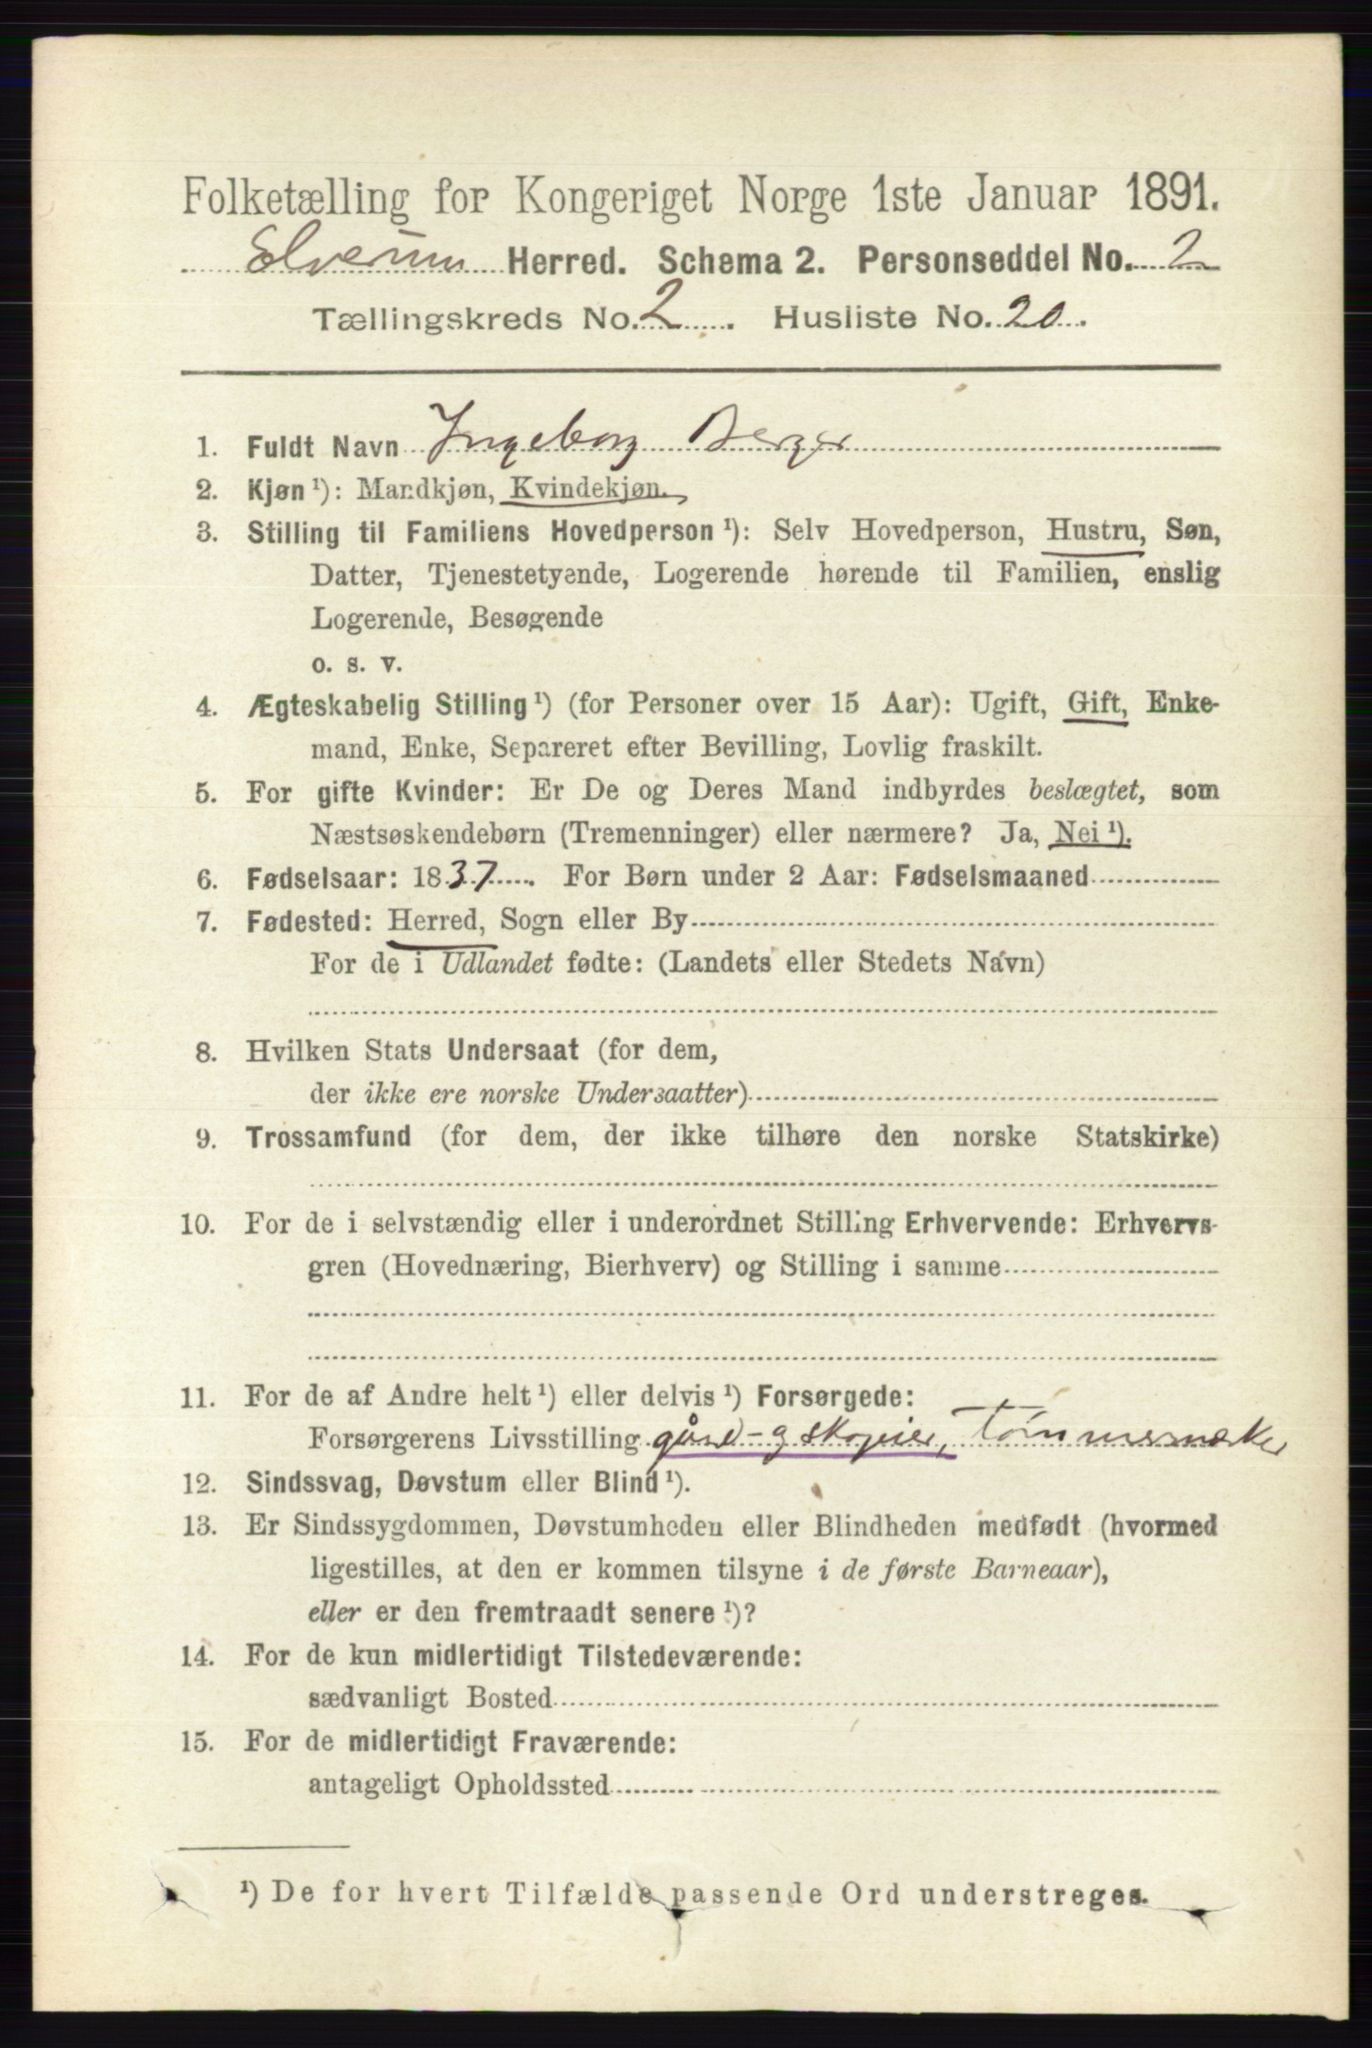 Folketælling for Kongeriget Norge 1ste Januar 1891.
Elverum Herred. Schema 2. Personseddel No. 2
Tællingskreds No. 2. Husliste No. 20.
1. Fuldt Navn Ingeborg Berger
2. Kjøn ¹): Mandkjøn, Kvindekjøn.
3. Stilling til Familiens Hovedperson ¹): Selv Hovedperson, Hustru, Søn,
Datter, Tjenestetyende, Logerende hørende til Familien, enslig
Logerende, Besøgende
o. s. v.
4. Ægteskabelig Stilling ¹) (for Personer over 15 Aar): Ugift, Gift, Enke-
mand, Enke, Separeret efter Bevilling, Lovlig fraskilt.
5. For gifte Kvinder: Er De og Deres Mand indbyrdes beslægtet, som
Næstsøskendebørn (Tremenninger) eller nærmere? Ja, Nei ¹).
6. Fødselsaar: 1837. For Børn under 2 Aar: Fødselsmaaned
7. Fødested: Herred, Sogn eller By
For de i Udlandet fødte: (Landets eller Stedets Navn)
8. Hvilken Stats Undersaat (for dem,
der ikke ere norske Undersaatter)
9. Trossamfund (for dem, der ikke tilhøre den norske Statskirke)
10. For de i selvstændig eller i underordnet Stilling Erhvervende: Erhvervs-
gren (Hovednæring, Bierhverv) og Stilling i samme
11. For de af Andre helt ¹) eller delvis ¹) Forsørgede:
Forsørgerens Livsstilling gård- og skogeier, tømmermærker
12. Sindssvag, Døvstum eller Blind ¹).
13. Er Sindssygdommen, Døvstumheden eller Blindheden medfødt (hvormed
ligestilles, at den er kommen tilsyne i de første Barneaar),
eller er den fremtraadt senere ¹)?
14. For de kun midlertidigt Tilstedeværende:
sædvanligt Bosted
15. For de midlertidigt Fraværende:
antageligt Opholdssted
¹) De for hvert Tilfælde passende Ord understreges.